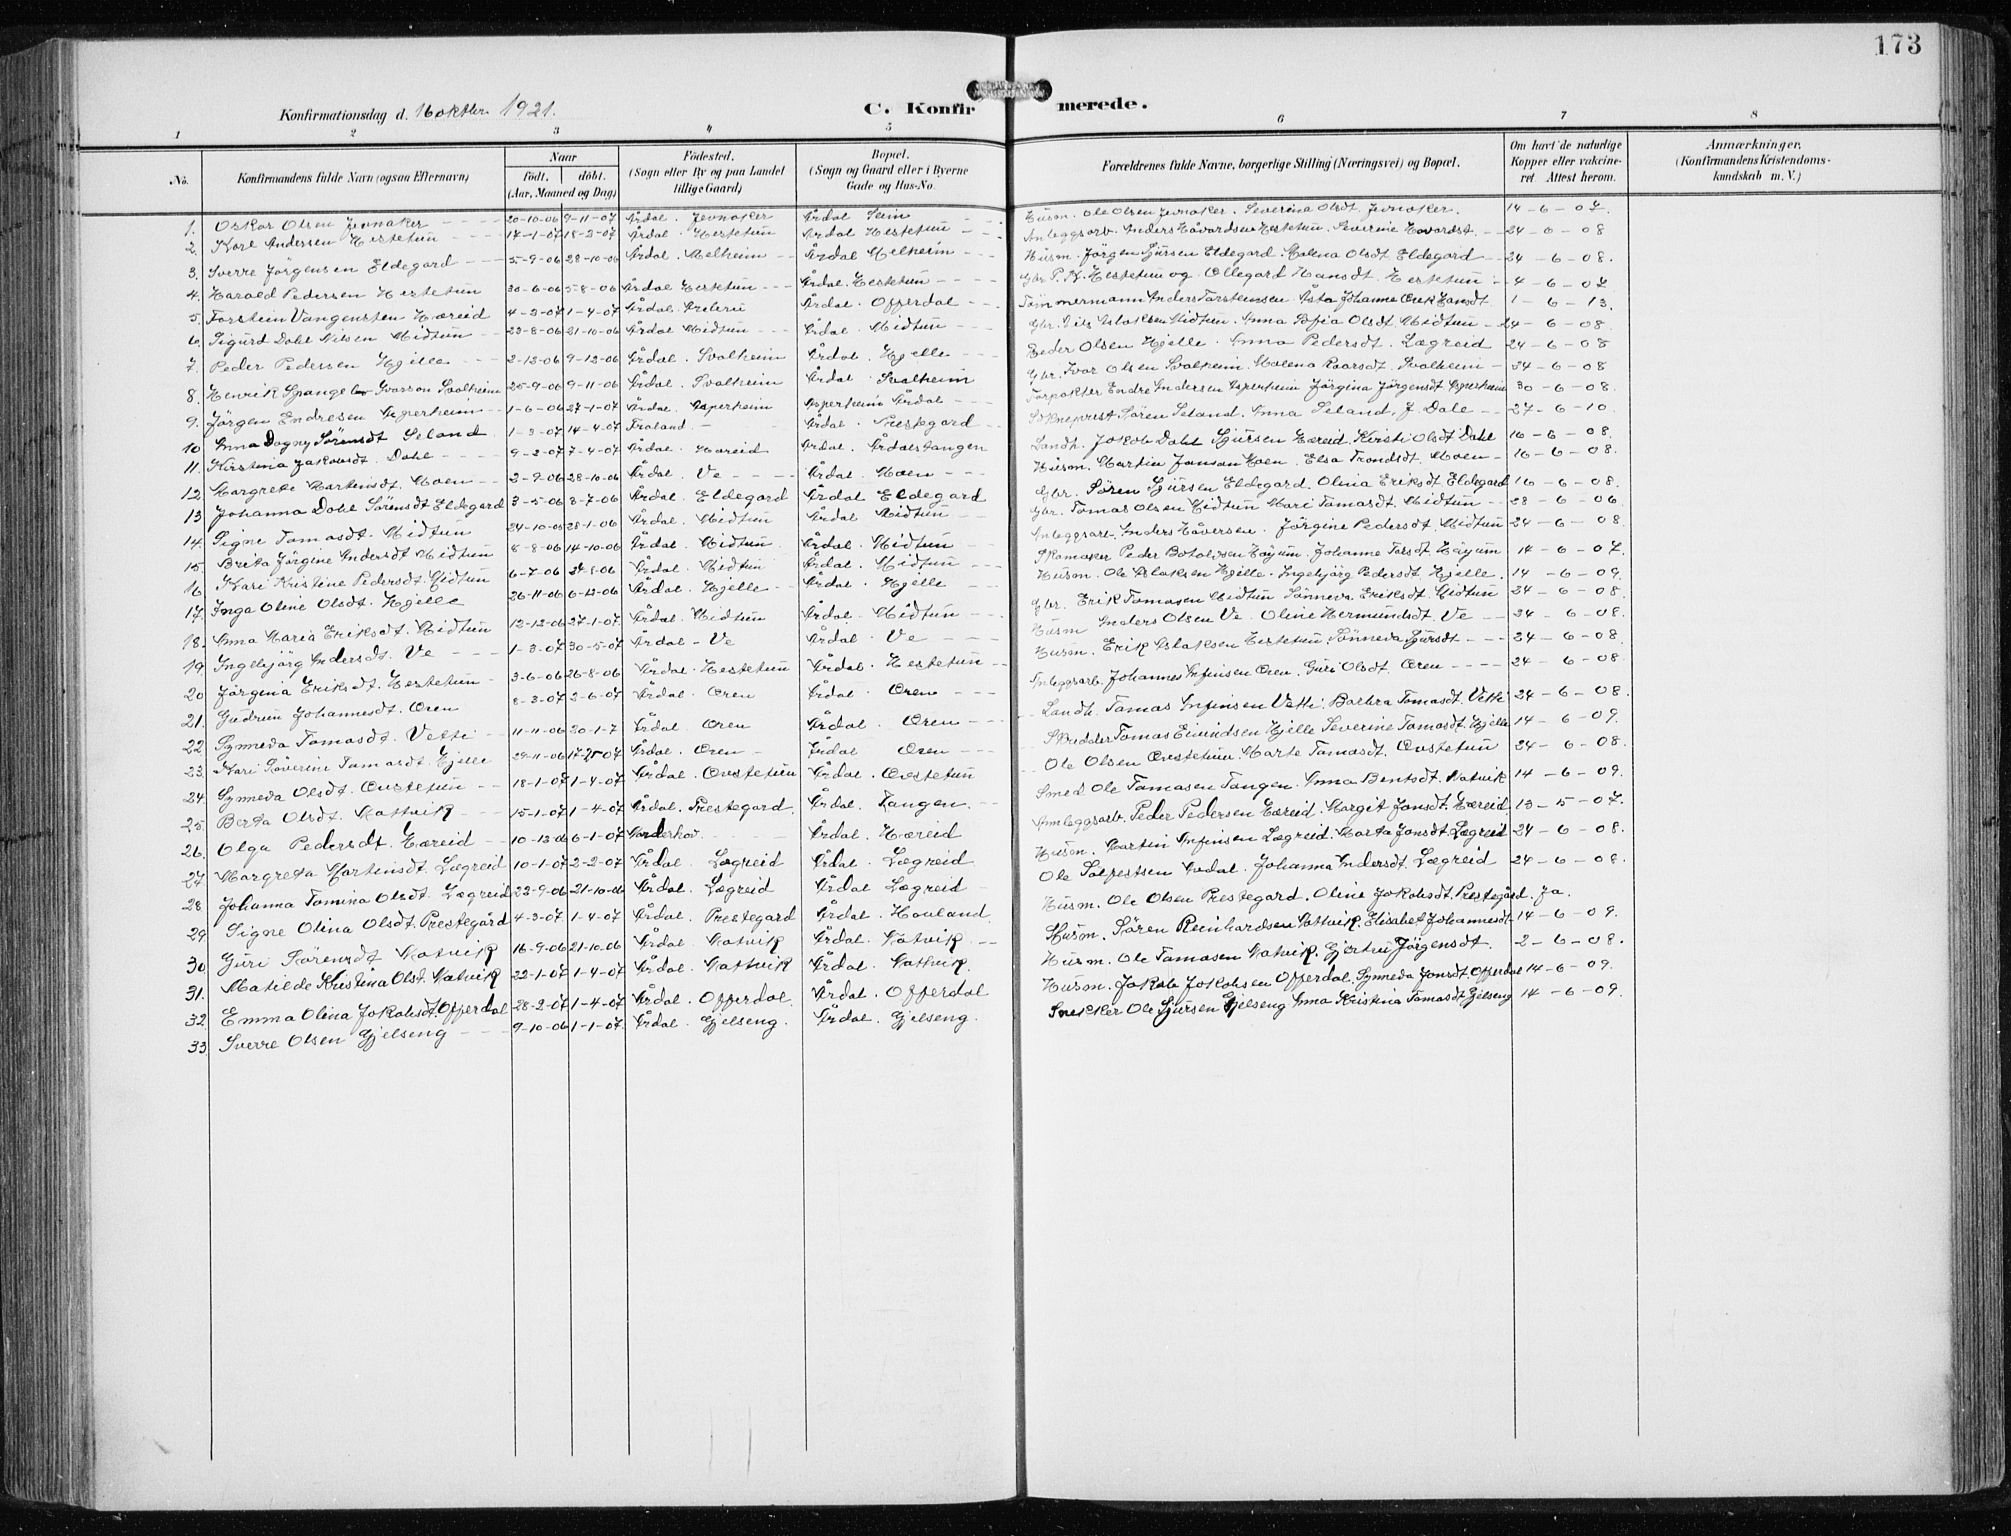 173
Konfirmationsdag d. 16 oktbr. 1921.
C. Konfirmerede.
1 2 3 4 5 6 7 8
No. Konfirmandens fulde Navn (ogsaa Efternavn) Naar født. døbt. (Aar, Maaned og Dag) Fødested. (Sogn eller By og paa Landet tillige Gaard) Bopæl. (Sogn og Gaard eller i Byerne Gade og Hus-No. Forældrenes fulde Navne, borgerlige Stilling (Næringsvei) og Bopæl. Om havt de naturlige Kopper eller vakcineret. Attest herom. Anmærkninger. (Konfirmandens Kristendomskundskab m. V.)
1. Oskar Olsen Jevnaker 20-10-06 9-11-07 Årdal. Jevnaker Årdal Seim Husm. Ole Olsen Jevnaker. Severina Olsdt. Jevnaker. 14-6-07.
2. Karl Andersen Hestetun 14-1-07 18-2-07 Årdal. Hestetun Årdal Hestetun Anleggsarb. Anders Håvardsen Hestetun. Severine Havardst. 24-6-08
3. Sverre Jörgensen Eldegard 5-9-06 28-10-06 Årdal. Melheim Årdal Melheim Husm. Jörgen Sjursen Eldegard. Malena Olsdt Eldegard 24-6-08.
4. Harald Pedersen Hestetun 30-6-06 5-8-06 Årdal Hestetun Årdal. Hestetun Gbr. P. H. Hestetun og Ollegard Hansdt Hestetun 4-6-07
5. Torstein Vangensten Hæreid 4-2-07 1-4-07 Årdal. Årdal. Offerdal Tömmermann Anders Torsteinsen Åsta Johanne Hansdt 1-6-13.
6. Sigurd Dahl Nilsen Midtun 23-8-06 21-10-06 Årdal Midtun Årdal. Midtun Gbr. Nils Aslaksen Midtun. Anna Sofia Olsdt. Midtun 24-6-08.
7. Peder Pedersen Hjelle 2-12-06 9-12-06 Årdal. Svalheim Årdal. Hjelle Peder Olsen Hjelle. Anna Pedersdt. Lægreid 24-6-08
8. Henrik Spangelo Ivarson Svalheim 25-9-06 9-11-06 Årdal. Svalheim Årdal. Svalheim Gbr. Ivar Olsen Svalheim. Malena Roarsdt. Svalheim 24-6-08
9. Jörgen Endresen Asperheim 1-6-06 27-1-07 Årdal. Asperheim Asperheim Årdal Forpakter Endre Andersen Asperheim Jörgina Jörgensdt Asperheim 30-6-08.
10 Anna Dagny Sörensdt Seland 1-3-07 14-4-07 Froland. Årdal. Prestegard Sokneprest Sören Seland. Anna Seland, f. Dale 27-6-10.
11. Kirstina Jakobsdt. Dahl 9-2-07 7-4-07 Årdal. Hæreid Årdal. Årdalstangen Landh. Jakob Dahl Sjursen Hæreid. Kirsti Olsdt Dahl 16-6-08.
12. Margrete Martinsdt. Moen 2-9-06 28-10-06 Årdal. Ve Årdal. Moen Husm. Martin Jonsen Moen. Elsa Trondsdt. Moen 16-6-08.
13. Johanna Dahl Sörensdt Eldegard 3-5-06 8-7-06 Årdal. Eldegard Årdal Eldegard Gbr. Sören Sjursen Eldegard. Olina Eriksdt Eldegard 16-6-08.
14. Signe Tomasdt. Midtun 24-10-05 28-1-06 Årdal. Midtun Årdal Midtun Gbr. Tomas Olsen Midtun Mari Tomasdt. Midtun 28-6-06
15. Brita Jörgine Andersdt Midtun 8-8-06 14-10-06 Årdal. Midtun Årdal. Midtun Anleggsarb. Anders Håversen. Jörgine Pedersdt Midtun 24-6-08.
16 Kari Kristene Pedersdt. Midtun 6-7-06 24-8-06 Årdal. Midtun Årdal. Midtun Skomaker Peder Botolvsen Höyum. Johanne Höyum 14-6-07.
17. Inga Oline Olsdt. Hjelle 26-11-06 6-12-06 Årdal. Hjelle Årdal. Hjelle Husm. Ole Aslaksen Hjelle. Ingebjörg Pedersdt. Hjelle. 14-6-09.
18. Anna Maria Eriksdt. Midtun 12-12-06 27-1-07. Årdal. Midtun Årdal. Midtun Gbr. Erik Tomasen Midtun Sönneva Eriksdt. Midtun 24-6-08.
19 Ingebjörg Andersdt. Ve 1-3-07 30-5-07 Årdal - Ve Årdal. Ve Husm Anders Olsen Ve. Oline Hermundsdt. Ve 24-6-08.
20 Jörgina Eriksdt. Hestetun 3-6-06 26-8-06 Årdal. Hestetun Årdal. Hestetun Husm. Erik Aslaksen Hestetun. Sönneva Sjursdt 24-6-08.
21. Gudrun Johannesdt. Øren 8-3-07 2-6-07 Årdal. Øren Årdal. Øren Anleggsarb. Johannes Anfinsen Øren. Guri Olsdt. Øren 24-6-08.
22 Synneva Tomasdt. Vetti 11-11-06 20-1-7 Årdal. Øren Årdal. Øren Landh. Tomas Anfinsen Vetti. Barbra Tomasdt. Vetti 24-6-08.
23. Kari Säverine Tomasdt. Hjelle 29-11-06 17-25-07 Årdal. Øren Årdal Øren Skredder Tomas Eivindsen Hjelle Severine Tomasdt. Hjelle 14-6-09.
24. Synneva Olsdt. Øvstetun 18-1-07 1-4-07 Årdal. Øvstetun Årdal. Øvstetun Ole Olsen Øvstetun. Marte Tomasdt. Øvstetun 24-6-08.
25. Berta Olsdt. Nattvik 15-1-07 1-4-07 Årdal. Prestegard. Årdal. Tangen. Smed Ole Tomasen Tangen. Anna Bentsdt. Natvik 14-6-09.
26. Olga Pedersdt. Hæreid 10-12-06 6-1-07 Norderhov. Årdal. Hæreid Annleggsarb. Peder Pedersen Hæreid. Margit Jonsdt. Hæreid 13-5-07.
27 Margreta Martinsdt. Lægreid 10-1-07 2-2-07 Årdal. Lægreid Årdal. Lægreid Husm. Martin Anfinsen Lægreid. Marta Jonsdt. Lægreid 24-6-08.
28 Johanna Tomina Olsdt. Lægreid 22-9-06 21-10-06 Årdal. Lægreid Årdal Lægreid Ole Solfestsen Avdal. Johanna Andersdt. Lægreid 24-6-08.
29 Signe Olina Olsdt. Prestegård 4-3-07 1-4-07. Årdal. Prestegard Årdal. Hovland. Husm. Ole Olsen Prestegard. Oline Jakobsdt. Prestegård. Ja.
30 Guri Sörensdt Natvik 16-9-06 21-10-06 Årdal. Natvik Årdal. Natvik Husm. Sören Reinhardsen Nattvik. Elisabet Johannesdt 14-6-09.
31. Matilde Kristina Olsdt. Natvik 22-1-07 1-4-07. Årdal. Nattvik Årdal. Nattvik. Husm. Ole Tomasen Natvik. Gjertru Jörgensdt. 2-6-08.
32. Emma Olina Jokobsdt. Offerdal 28-2-07 1-4-07 Årdal. Offerdal. Årdal. Offerdal Husm. Jakob Jokobsen Offerdal. Synneva Jonsdt. Offerdal 14-6-09.
33 Sverre Olsen Gjelseng 9-10-06 1-1-07. Årdal. Gjelseng. Årdal. Gjelseng. Snekker Ole Sjursen Gjelseng Anna Kristina Tomasdt. Gjelseng 14-6-09.